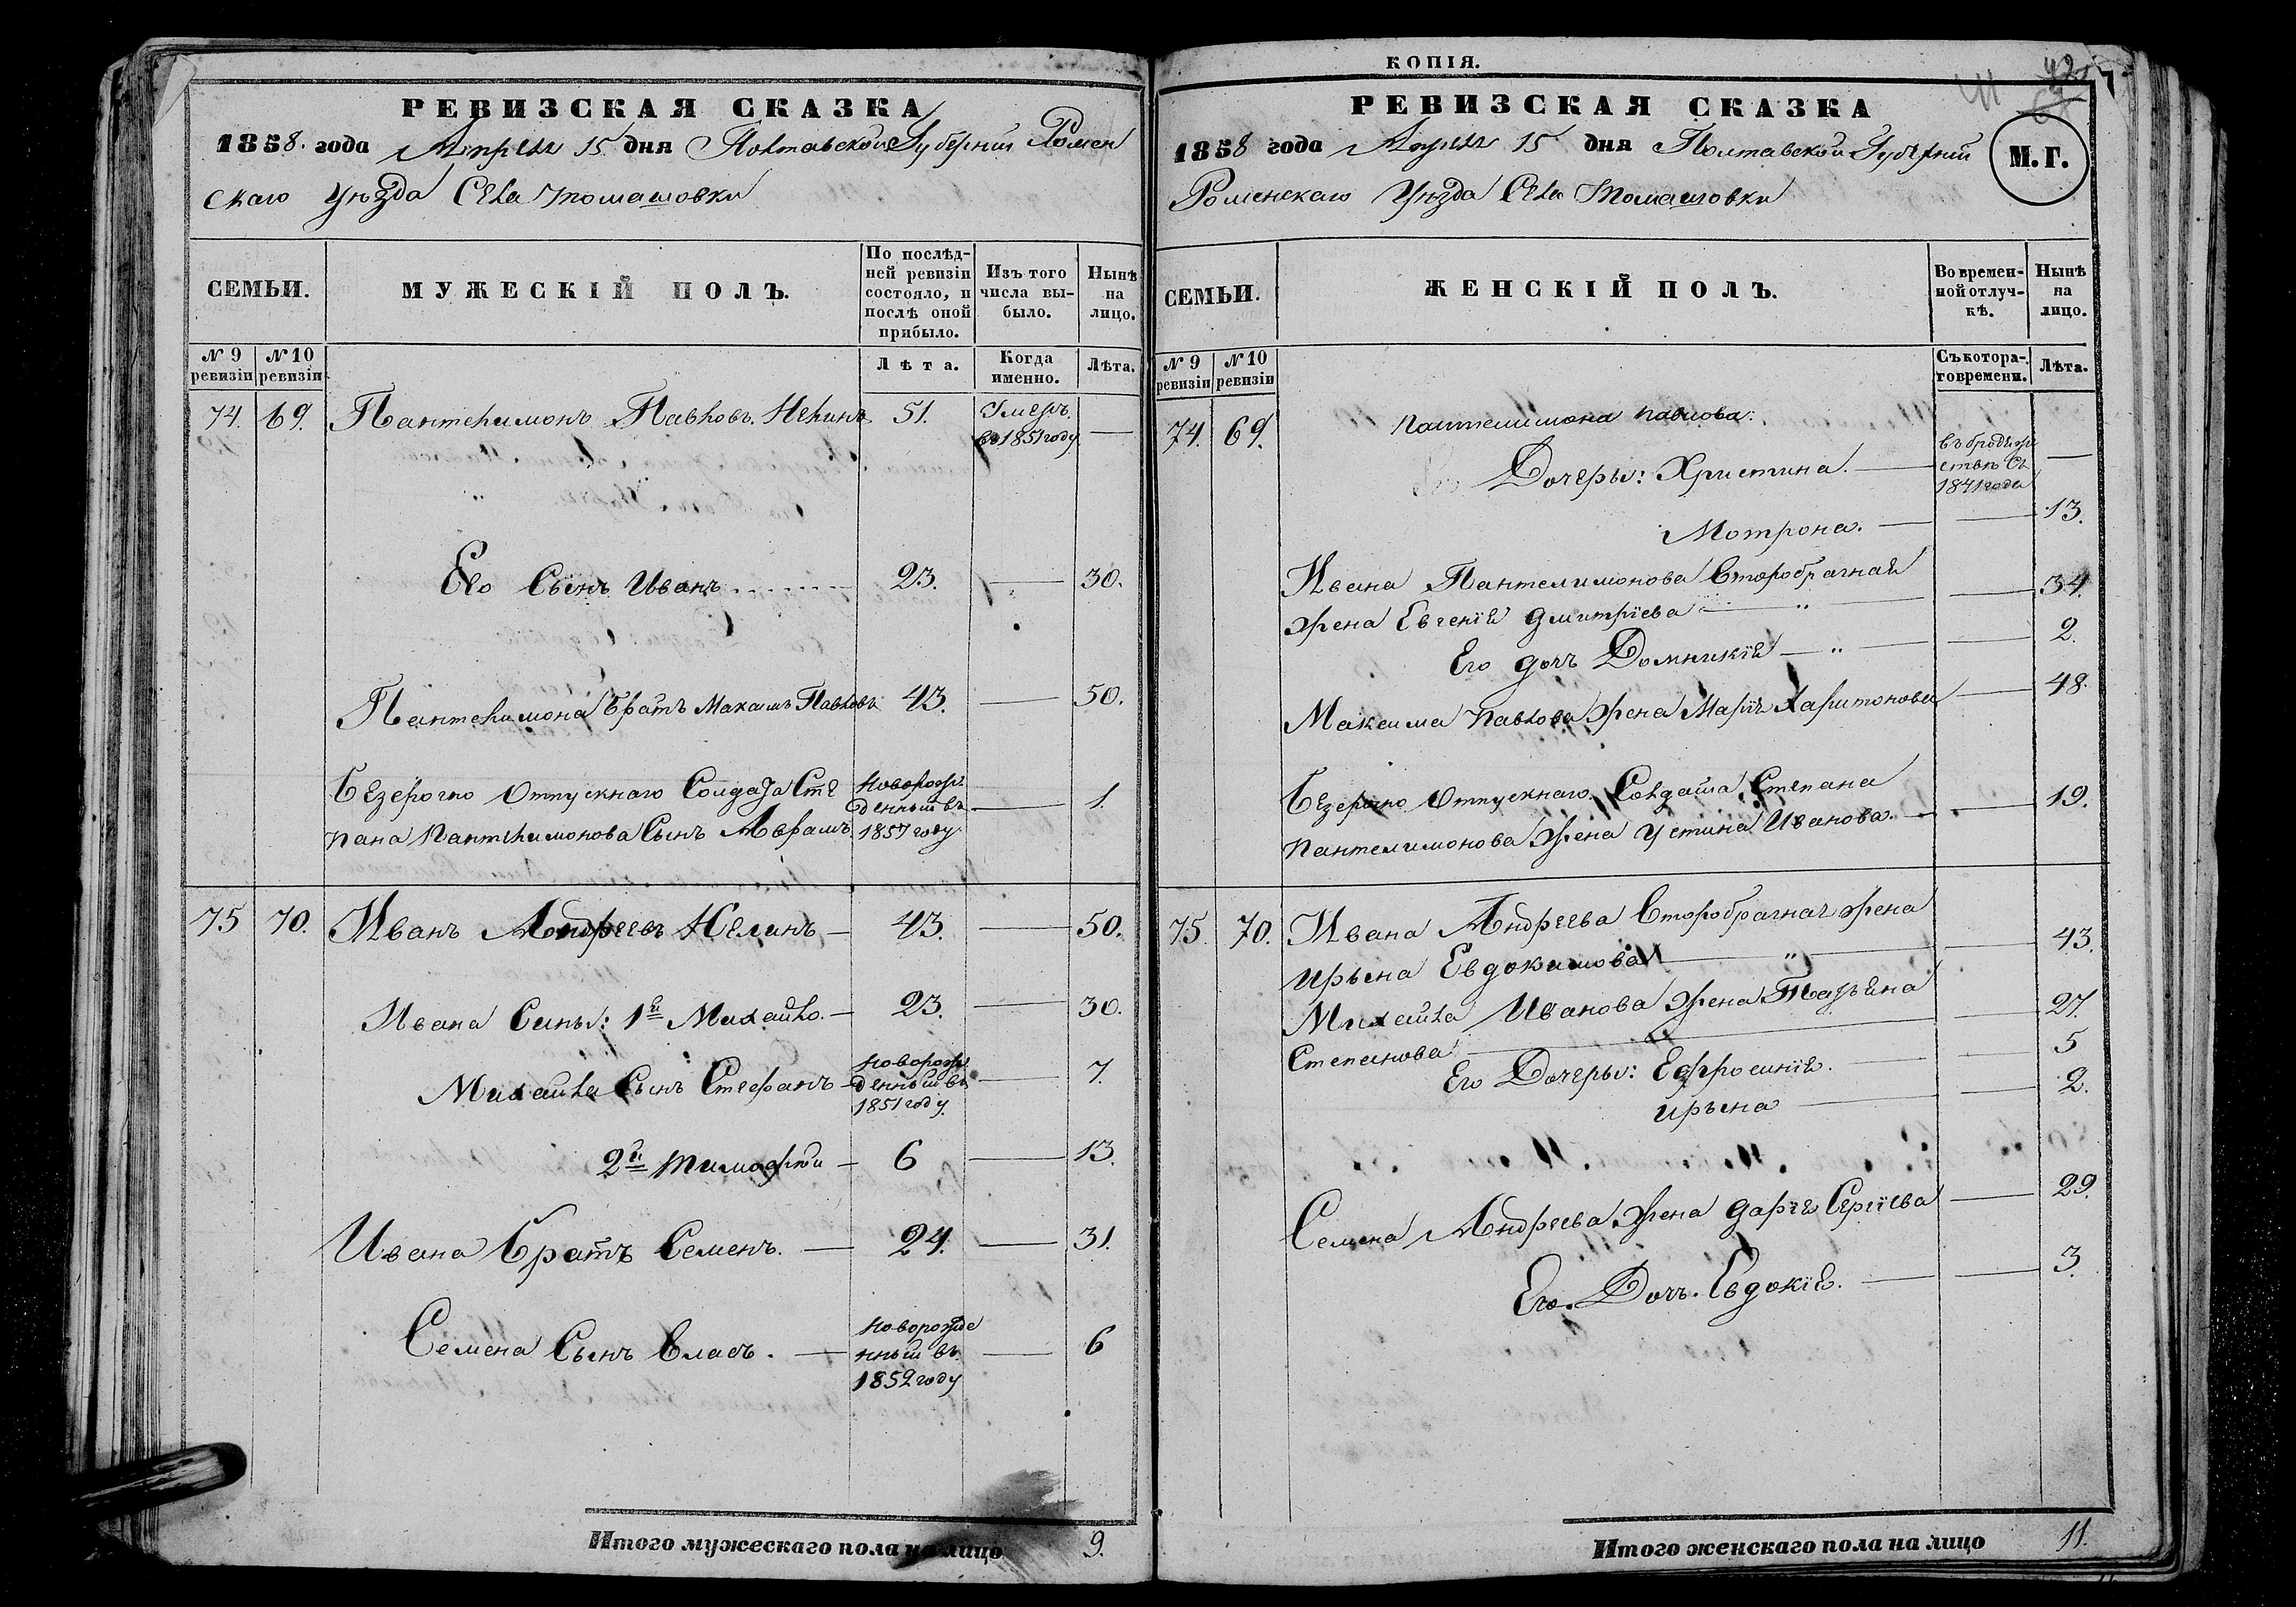 РЕВИЗСКАЯ СКАЗКА
1858. года Апреля 15 дня Полтавской Губернии Ромен
скаго Уѣзда Села Томашовки
СЕМЬИ.
МУЖЕСКІЙ ПОЛЪ.
По послѣд-
ней ревизіи
состояло, и
послѣ оной
прибыло.
Изъ того
числа вы-
было.
Нынѣ
на
лицо.
№ 9
ревизіи
№ 10
ревизіи
Лѣта.
Когда
именно.
Лѣта.
74. 69. Пантелимонъ Павловъ Нелинъ 51. Умеръ
въ 1851 году —
Его Сынъ Иванъ 23. — 30.
Пантелимона Братъ Максимъ Павловъ 43. — 50.
Безсрочно Отпускнаго Солдата Сте
пана Пантелимонова Сынъ Аврамъ
Новорож
денный въ
1857 году — 1.
75 70. Иванъ Андреевъ Нелинъ — 43. — 50.
Ивана Сины: 1й Михайло. — 23. — 30.
Михайла Сынъ Стефанъ —
Новорож
денный въ
1851 году — 7.
2й Тимофей — 6 — 13.
Ивана Братъ Семенъ. — 24. — 31.
Семена Сынъ Власъ. —
Новорожде
нный въ
1852 году — 6
Итого мужескаго пола на лицо 9.
КОПІЯ.
41 42
РЕВИЗСКАЯ СКАЗКА
1858 года Апреля 15 дня Полтавской Губернии
Роменскаго Уѣзда Села Томашовки
М.Г.
СЕМЬИ.
ЖЕНСКІЙ ПОЛЪ.
Во времен-
ной отлуч-
кѣ.
Нынѣ
на
лицо.
№ 9
ревизіи
№ 10
ревизіи
Съ котора-
го времени.
Лѣта.
74. 69. Пантелимона Павлова:
Дочеры: Христина. —
въ бродяж
ствѣ съ
1841 года —
Мотрона. — — 13.
Ивана Пантелимонова Второбрачная
жена Евгенія Дмитріева — 34.
Его дочь Домникія — 2.
Максима Павлова жена Марія Харитонова — 48.
Безсрочно Отпускнаго Солдата Степана
Пантелимонова жена Устина Иванова. — 19.
75. 70. Ивана Андреева Второбрачная жена
Ирына Евдокимова — 43.
Михайла Иванова жена Татьяна
Степанова — 27.
Его Дочеры: Ефросинія. — 5
Ирына — 2.
Семена Андреева жена Дарія Сергіева — 29.
Его Дочь Евдокія. — 3.
Итого женскаго пола на лицо 11.